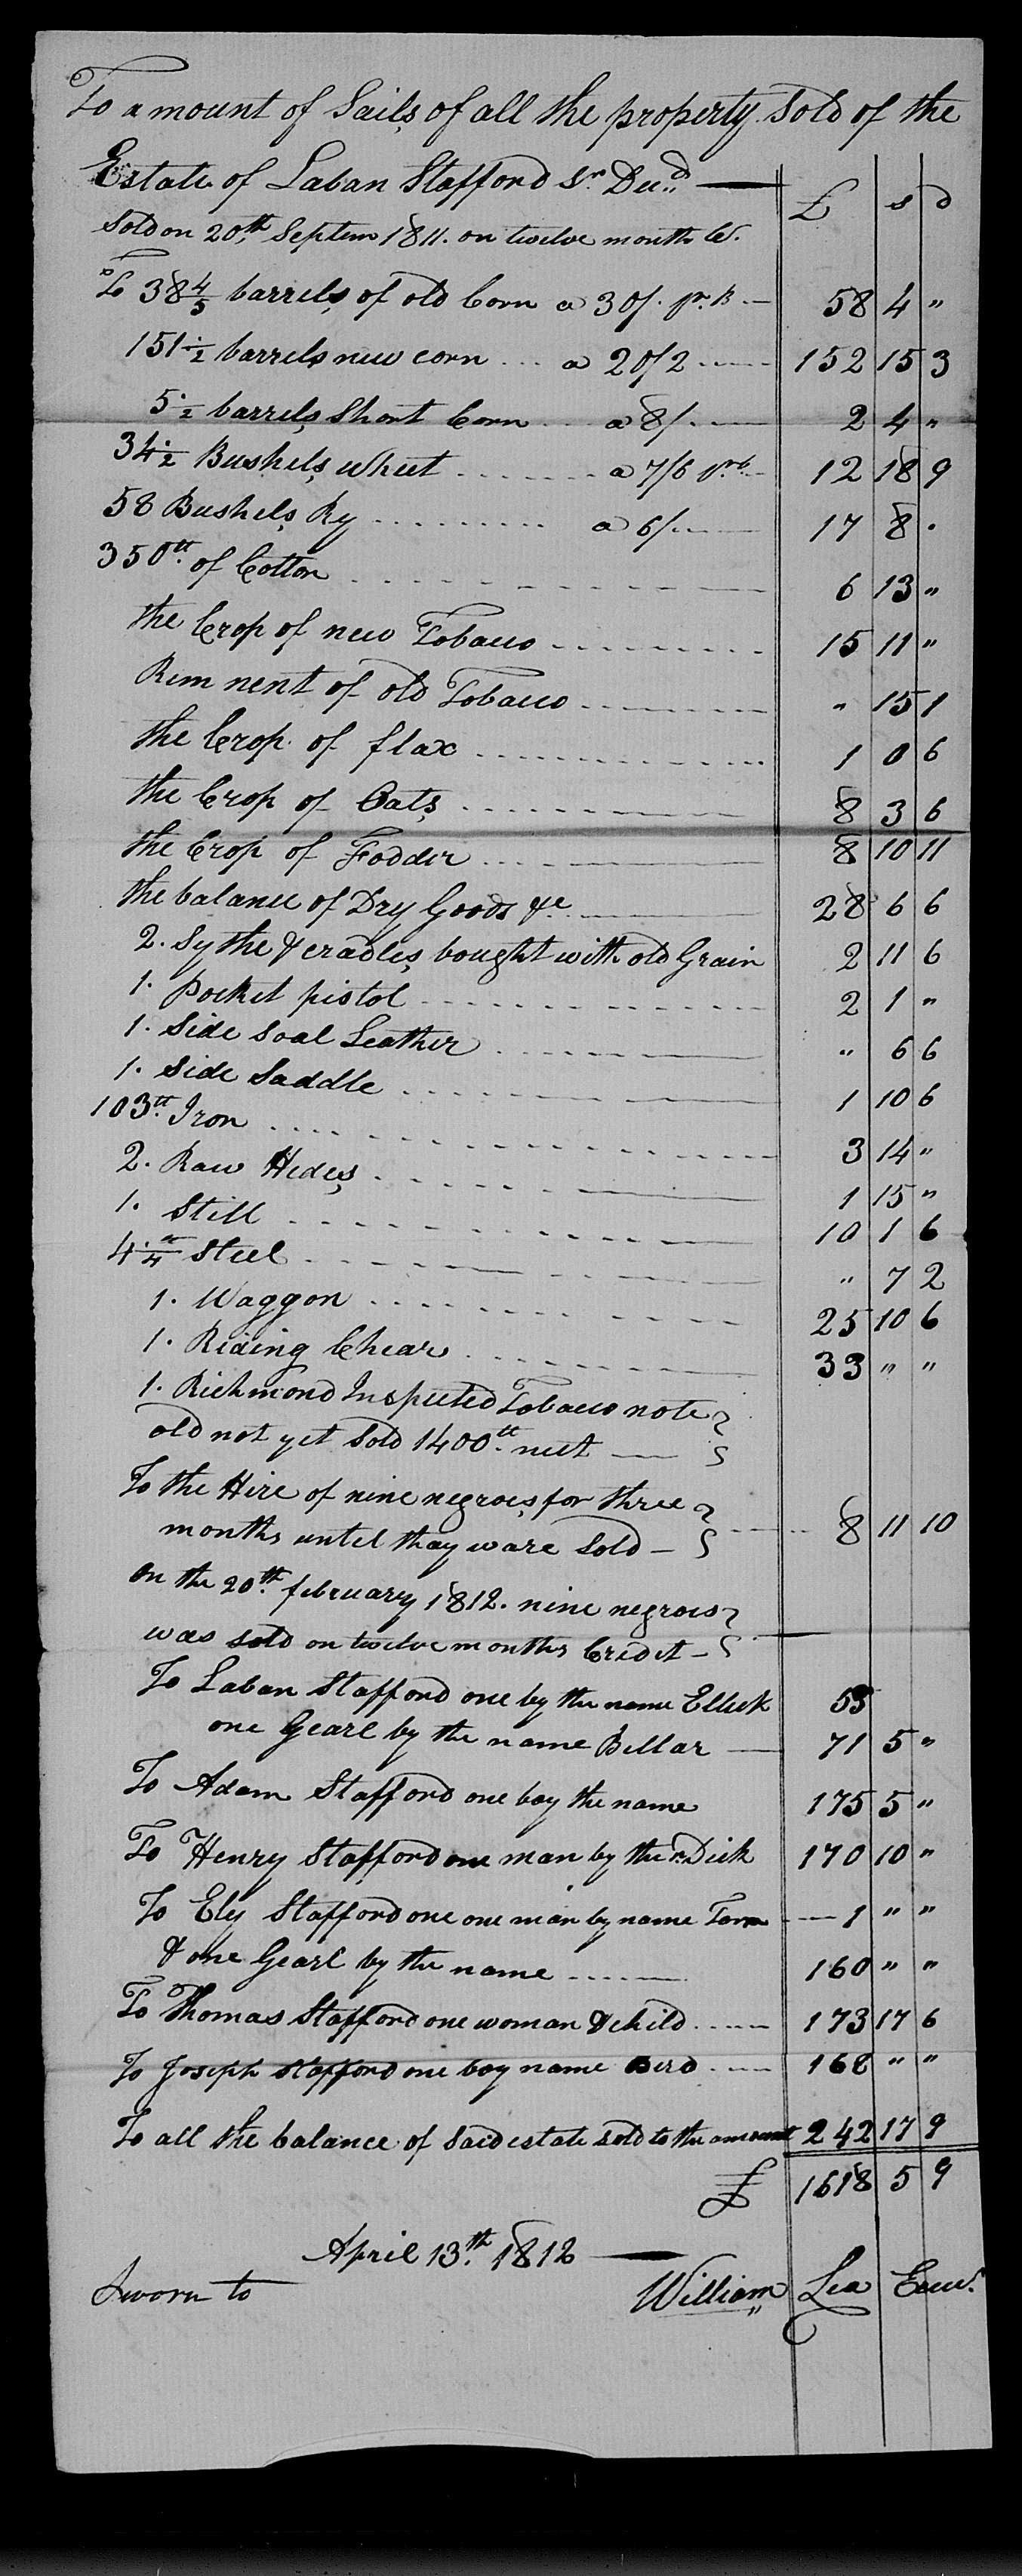 To amount of Sails of all the property Sold of the
Estate of Laban Stafford Sr Decd £ s d
Sold on 20th Septem 1811. on twelve month Cr.
To 38 4/5 barrels of old Corn a 30/. pr. B 58 4 "
151 1/2 barrels new corn a 20/2 152 15 3
5 1/2 barrels Short Corn a 8/. 2 4 "
34 1/2 Bushels wheet a 7/6 pr b 12 18 9
58 Bushels Ry a 6/ 17 8 "
350tt of Cotton 6 13 "
the Crop of new Tobacco 15 11 "
Rim nent of old Tobacco " 15 1
the Crop of flax 1 0 6
the Crop of Oats 8 3 6
the Crop of Fodder 8 10 11
the balance of Dry Goods &c 28 6 6
2. Sythe & cradles bought with old Grain 2 11 6
1. Pocket pistol 2 1 "
1. Side Soal Leather " 6 6
1. Side Saddle 1 10 6
103tt Iron 3 14 "
2. Raw Hides 1 15 "
1. Still 10 1 6
4 1/4 tt Steel " 7 2
1. Waggon 25 10 6
1. Riding Chear 33 " "
1. Richmond Inspected Tobacco note
old not yet Sold 1400tt neet
To the Hire of nine negroes for three
months until thay ware Sold 8 11 10
on the 20th february 1812. nine negroes
was sold on twelve months Credit
To Laban Stafford one by the name Ellick 55
one Gearl by the name Bellar 71 5 "
To Adam Stafford one boy the name 175 5 "
To Henry Stafford one man by the n. Dick 170 10 "
To Ely Stafford one one man by name Tom 1 " "
& one Gearl by the name 160 " "
To Thomas Stafford one woman & child 173 17 6
To Joseph Stafford one boy name Bird 168 " "
To all the balance of Said estate sold to the amount 242 17 9
£ 1618 5 9
April 13th. 1812
Sworn to William Lea Exec.